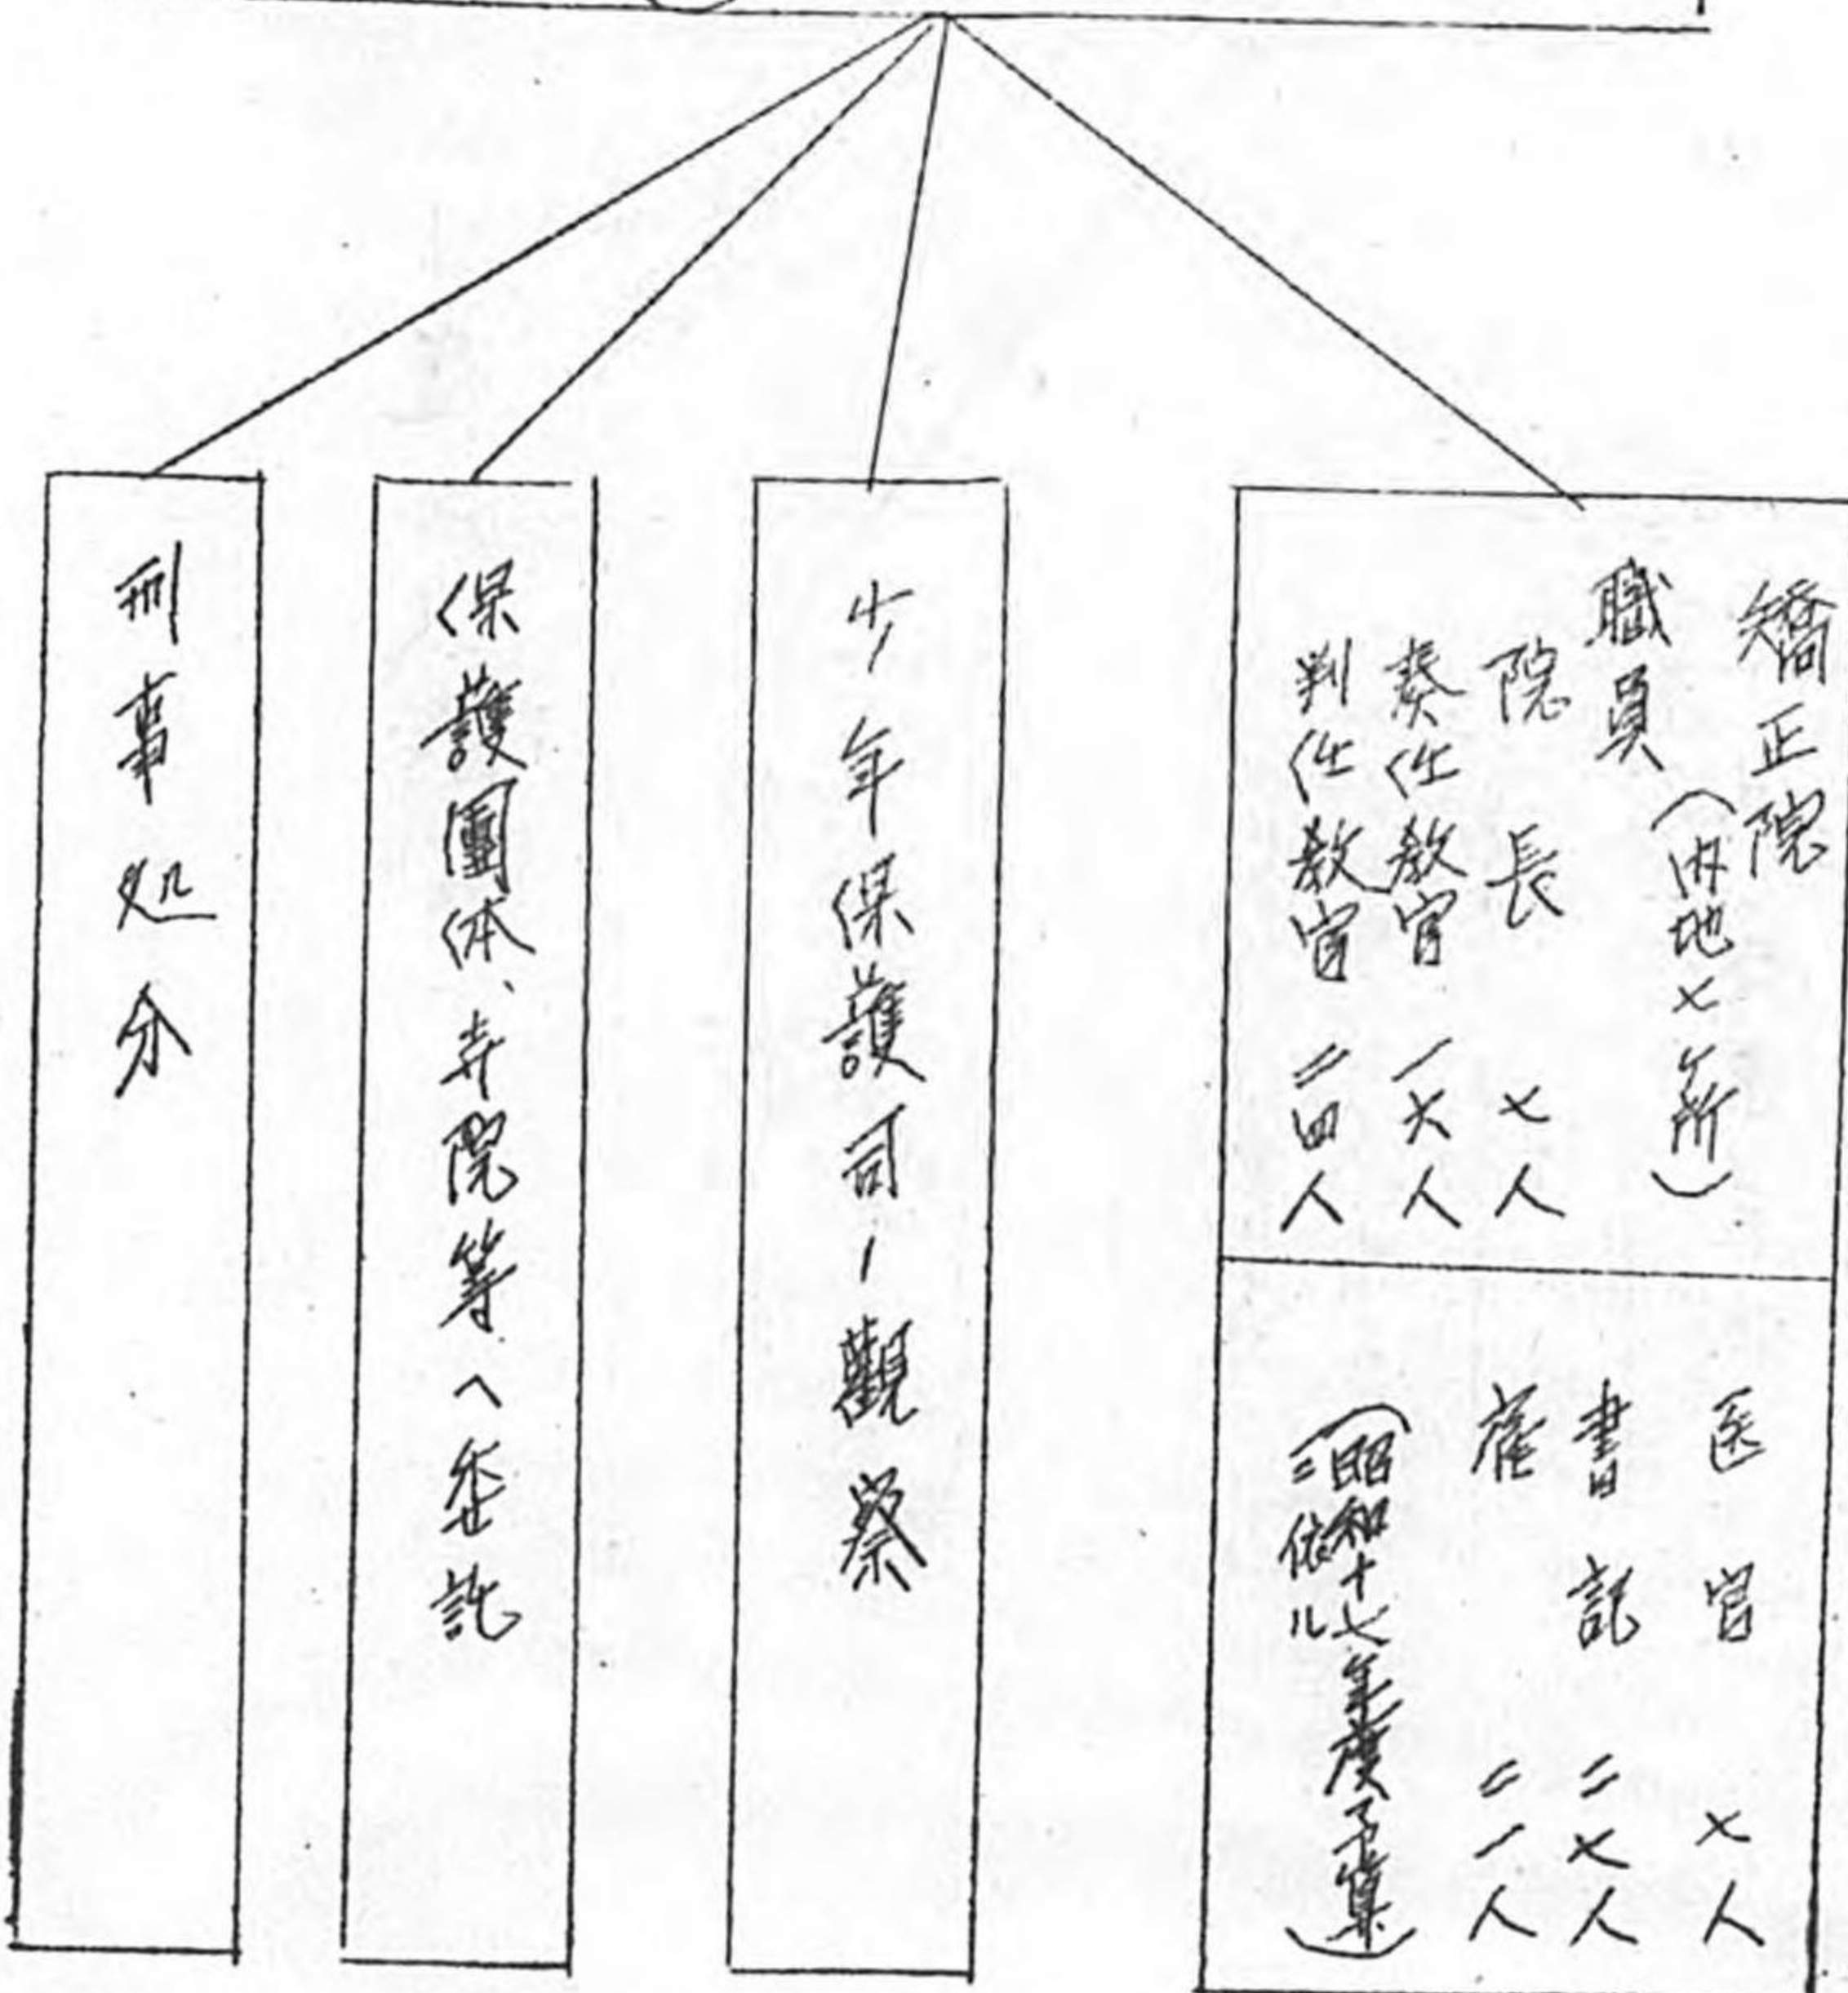 矯正院
(内地七ヶ所)
職員
院長 七人
奏任教官 一六人
判任教官 二四人
医官 七人
書記 二七人
雇 二一人
(昭和十七年度予算
ニ依ル)
少年保護司ノ觀察
保護團体、寺院等ヘ委託
刑事処分